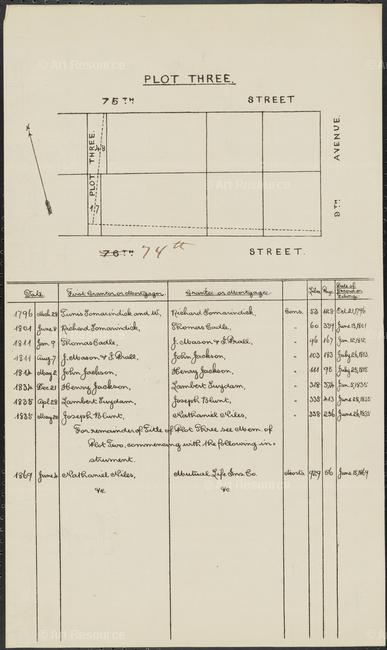 PLOT THREE.
75TH STREET
PLOT THREE.
8TH AVENUE.
76TH 74th STREET.
Date First Grantor or Mortgagor Grantee or Mortgagee Liber Page Date of Record
1796 Richard Somarindick, Cons. 53 Oct 21, 1796
1801 June 8 Richard Somarindick, Thomas Cadle, " 60 June 13, 1801
1811 Jan 9 Thomas Cadle, J. Mason & J. Prall, " 96 167
1811 Aug 7 J. Mason & J. Prall, John Jackson, " 103 183
1814 May 2 John Jackson, Henry Jackson, " 111 95
1834 Dec 27 Henry Jackson, Lambert Suydam, " 318 374 Jan 3, 1835
1835 Apl 28 Lambert Suydam, Joseph Blunt, " 338 June 26, 1835
1835 May 20 Joseph Blunt, Nathaniel Niles, " 338 236 June 26, 1835
For remainder of Title of Plot Three see Mem. of
Plot Two, commencing with the following in-
strument.
1869 June 5 Nathaniel Niles, Mutual Life Ins Co. Morts. 929 56 June 15, 1869
&c &c
© Art Resource